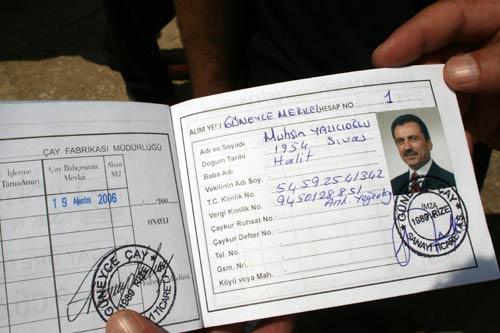 ÇAY FABRİKASI MÜDÜRLÜĞÜ
İşletme
Çay Bahçesinin
Mevkii
Alanı
M2
19 Ağustos 2006
...../...../200....
ONAYLI
GÜNEYCE ÇAY
1989 RİZE
SANAYİ TİCARET
ALIM YERİ GÜNEYCE MERKEZ HESAP NO 1
Adı ve Soyadı Muhsin YAZICIOĞLU
Doğum Tarihi 1954 Sivas
Baba Adı Halit
Vekilinin Adı Soy.
T.C. Kimlik No. 54592541342
Vergi Kimlik No. 9450128851
Çaykur Ruhsat No.
Çaykur Defter No.
Tel. No.
Gsm. No.
Köyü veya Mah.
GÜNEYCE ÇAY
İMZA
1989 RİZE
SANAYİ TİCARET A.Ş.